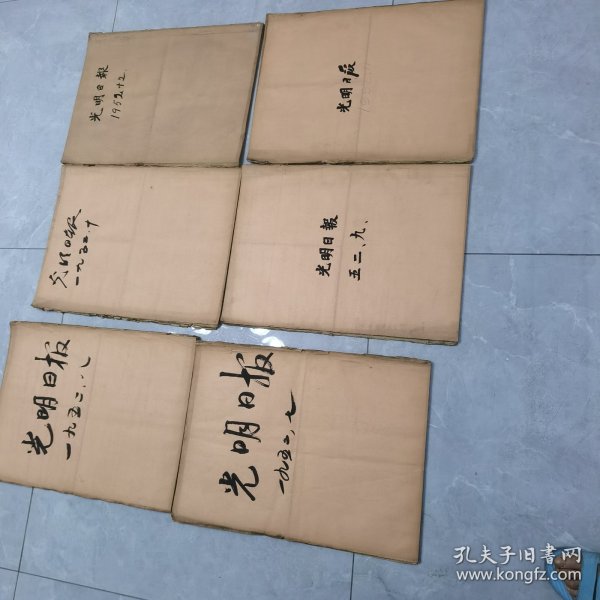 光明日報
1952.12
光明日报
光明日报
一九五二.十
光明日報
五二、九、
光明日报
一九五二.八
光明日报
一九五二,七
孔夫子旧书网
www.kongfz.com